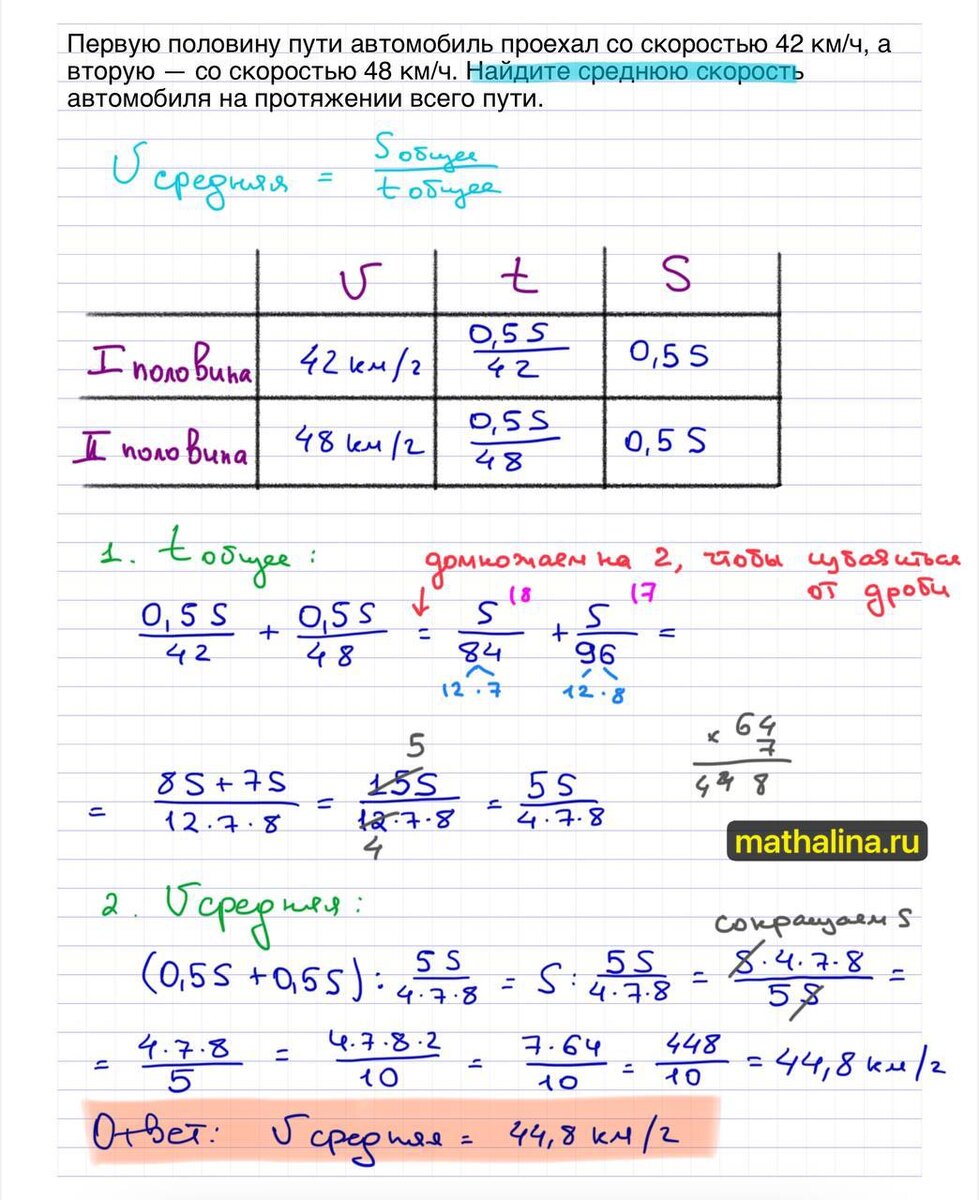 Первую половину пути автомобиль проехал со скоростью 42 км/ч, а
вторую — со скоростью 48 км/ч. Найдите среднюю скорость
автомобиля на протяжении всего пути.
V средняя = S общее / t общее
V t S
I половина 42 км/ч 0,5S/42 0,5S
II половина 48 км/ч 0,5S/48 0,5S
1. t общее:
домножаем на 2, чтобы избавиться
от дроби
0,5S/42 + 0,5S/48 = S/84 (8 + S/96 (7 =
12·7 12·8
= (8S + 7S)/(12·7·8) = 15S/(12·7·8) = 5S/(4·7·8)
5
4
× 64
7
448
mathalina.ru
2. V средняя:
сокращаем S
(0,5S + 0,5S) : 5S/(4·7·8) = S : 5S/(4·7·8) = S·4·7·8/5S =
= 4·7·8/5 = 4·7·8·2/10 = 7·64/10 = 448/10 = 44,8 км/ч
Ответ: V средняя = 44,8 км/ч